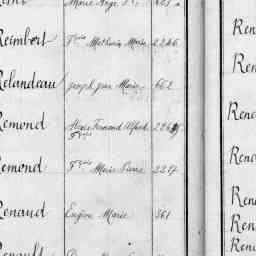 Marie Ange
Reimbert Fois Mathurin Marie 2246
Relandeau Joseph Jean Marie 662
Remond Alexis Fernand Alfred 226
Remond Fois Marie Pierre 2217
Renaud Eugène Marie 361
Renault
Ren
Ren
Renc
Rena
Ren
Ren
Rena